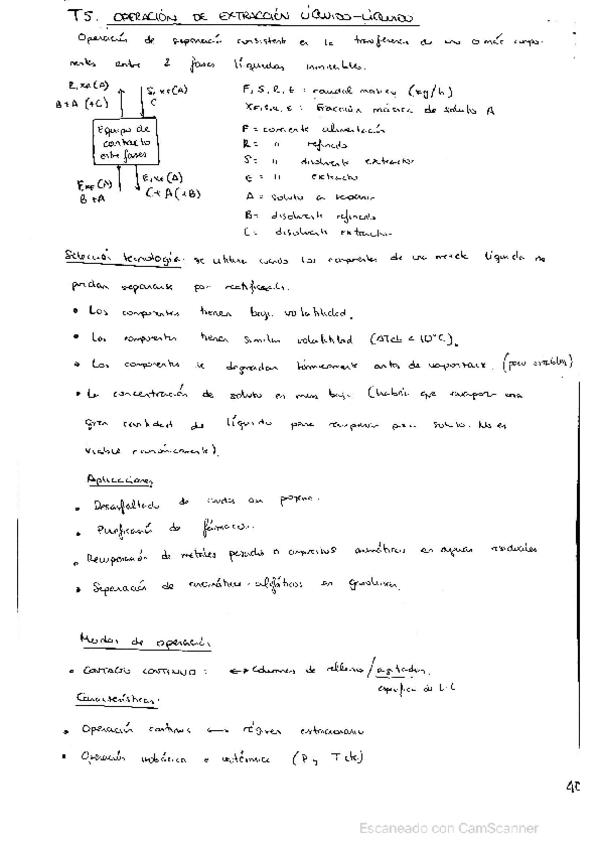 T5. OPERACIÓN DE EXTRACCIÓN LÍQUIDO-LÍQUIDO
Operación de separación consistente en la transferencia de uno o más compo-
nentes entre 2 fases líquidas inmiscibles.
R, xR(A)
B+A (+C)
S, xS(A)
C
Equipo de
contacto
entre fases
F, xF(A)
B+A
E, xE(A)
C+A(+B)
F, S, R, E : caudal másico (kg/h)
XF,S,R,E : Fracción másica de soluto A
F = corriente alimentación
R = " refinado
S = " disolvente extractor
E = " extracto
A = soluto a
B = disolvente refinado
C = disolvente extractor
Selección tecnología: se utiliza cuando los componentes de una mezcla líquida no
puedan separarse por rectificación.
• Los componentes tienen baja volatilidad.
• Los componentes tienen similar volatilidad (ΔTeb < 10°C).
• Los componentes se degradan térmicamente antes de vaporizarse. (poco estables)
• La concentración de soluto es muy baja (habría que evaporar una
gran cantidad de líquido para recuperar poco soluto. No es
viable económicamente).
Aplicaciones
• Desasfaltado de crudos con propano.
• Purificación de fármacos.
• Recuperación de metales pesados o compuestos aromáticos en aguas residuales
• Separación de aromáticos-alifáticos en gasolinas.
Modos de operación
• CONTACTO CONTINUO: ↔ Columnas de relleno / agitadas.
específica de L-L
Características.
• Operación continua ↔ régimen estacionario
• Operación isobárica e isotérmica (P y T cte)
40
Escaneado con CamScanner